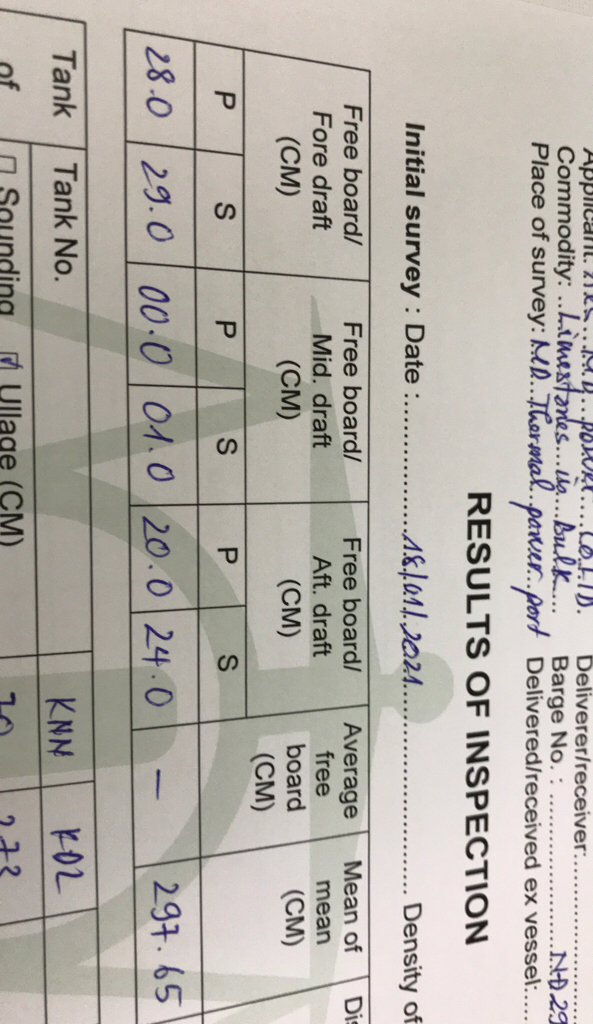 Commodity: ..Limestones...in...Bulk....
Place of survey: M.D...Thermal..power..port
Deliverer/receiver:
Barge No. : ND 29
Delivered/received ex vessel:
RESULTS OF INSPECTION
Initial survey : Date : 18/01/2021 Density of
Free board/ Fore draft (CM)
Free board/ Mid. draft (CM)
Free board/ Aft. draft (CM)
Average free board (CM)
Mean of mean (CM)
P S P S P S
28.0 29.0 00.0 01.0 20.0 24.0 – 297.65
Tank Tank No. KNN KD2
of Sounding ☑ Ullage (CM) 273